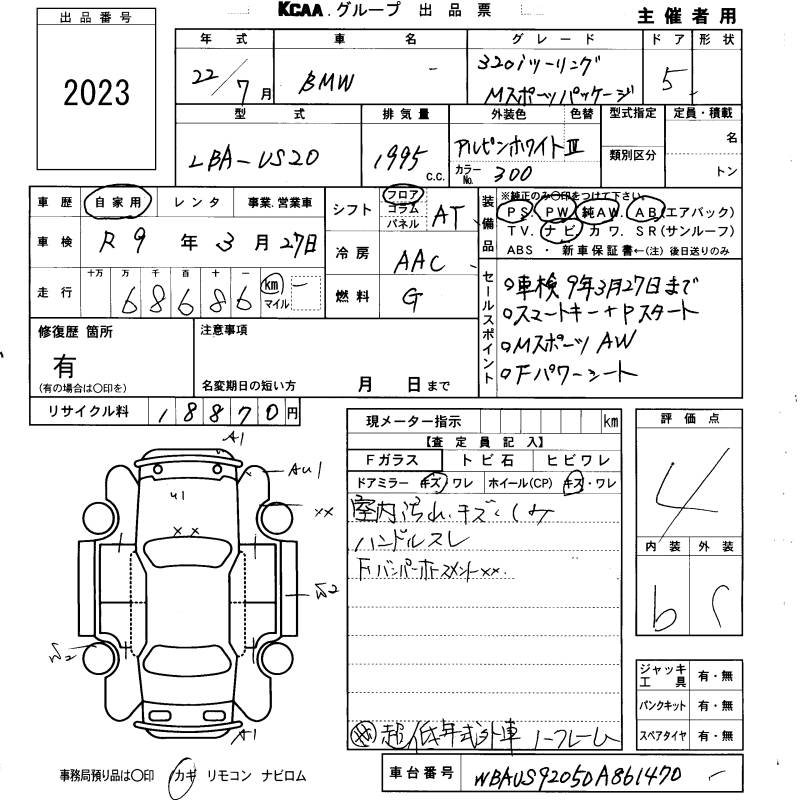 KCAA グループ 出品票
主催者用
出品番号
2023
年式 車名 グレード ドア 形状
22/7月 BMW - 320iツーリング Mスポーツパッケージ 5
型式 排気量 外装色 色替 型式指定 定員・積載
LBA-US20 1995 c.c. アルピンホワイトⅢ
カラーNo. 300 類別区分 名
トン
車歴 自家用 レンタ 事業.営業車
車検 R9年3月27日
走行 十万 万 千 百 十 一
68686 km マイル -
シフト フロア コラム パネル AT
冷房 AAC
燃料 G
装備品 ※純正のみ〇印をつけて下さい。
PS. PW. 純AW. AB(エアバック)
TV. ナビ. カワ. SR(サンルーフ)
ABS・新車保証書←(注)後日送りのみ
セールスポイント
○車検9年3月27日まで
○スマートキー+Pスタート
○MスポーツAW
○Fパワーシート
修復歴 箇所 注意事項
有
(有の場合は〇印を) 名変期日の短い方 月 日まで
リサイクル料 18870円
現メーター指示 km
【査定員記入】
Fガラス トビ石 ヒビワレ
ドアミラー キズ・ワレ ホイール(CP) キズ・ワレ
室内汚れ.キズ.シミ
ハンドルスレ
Fバンパー ××.
超低年式外車 ノークレーム
評価点
4
内装 外装
b C
A1
AU1
U1
××
××
W2
W2
A1
ジャッキ工具 有・無
パンクキット 有・無
スペアタイヤ 有・無
事務局預り品は〇印 カギ リモコン ナビロム
車台番号 WBAUS92050A861470 -